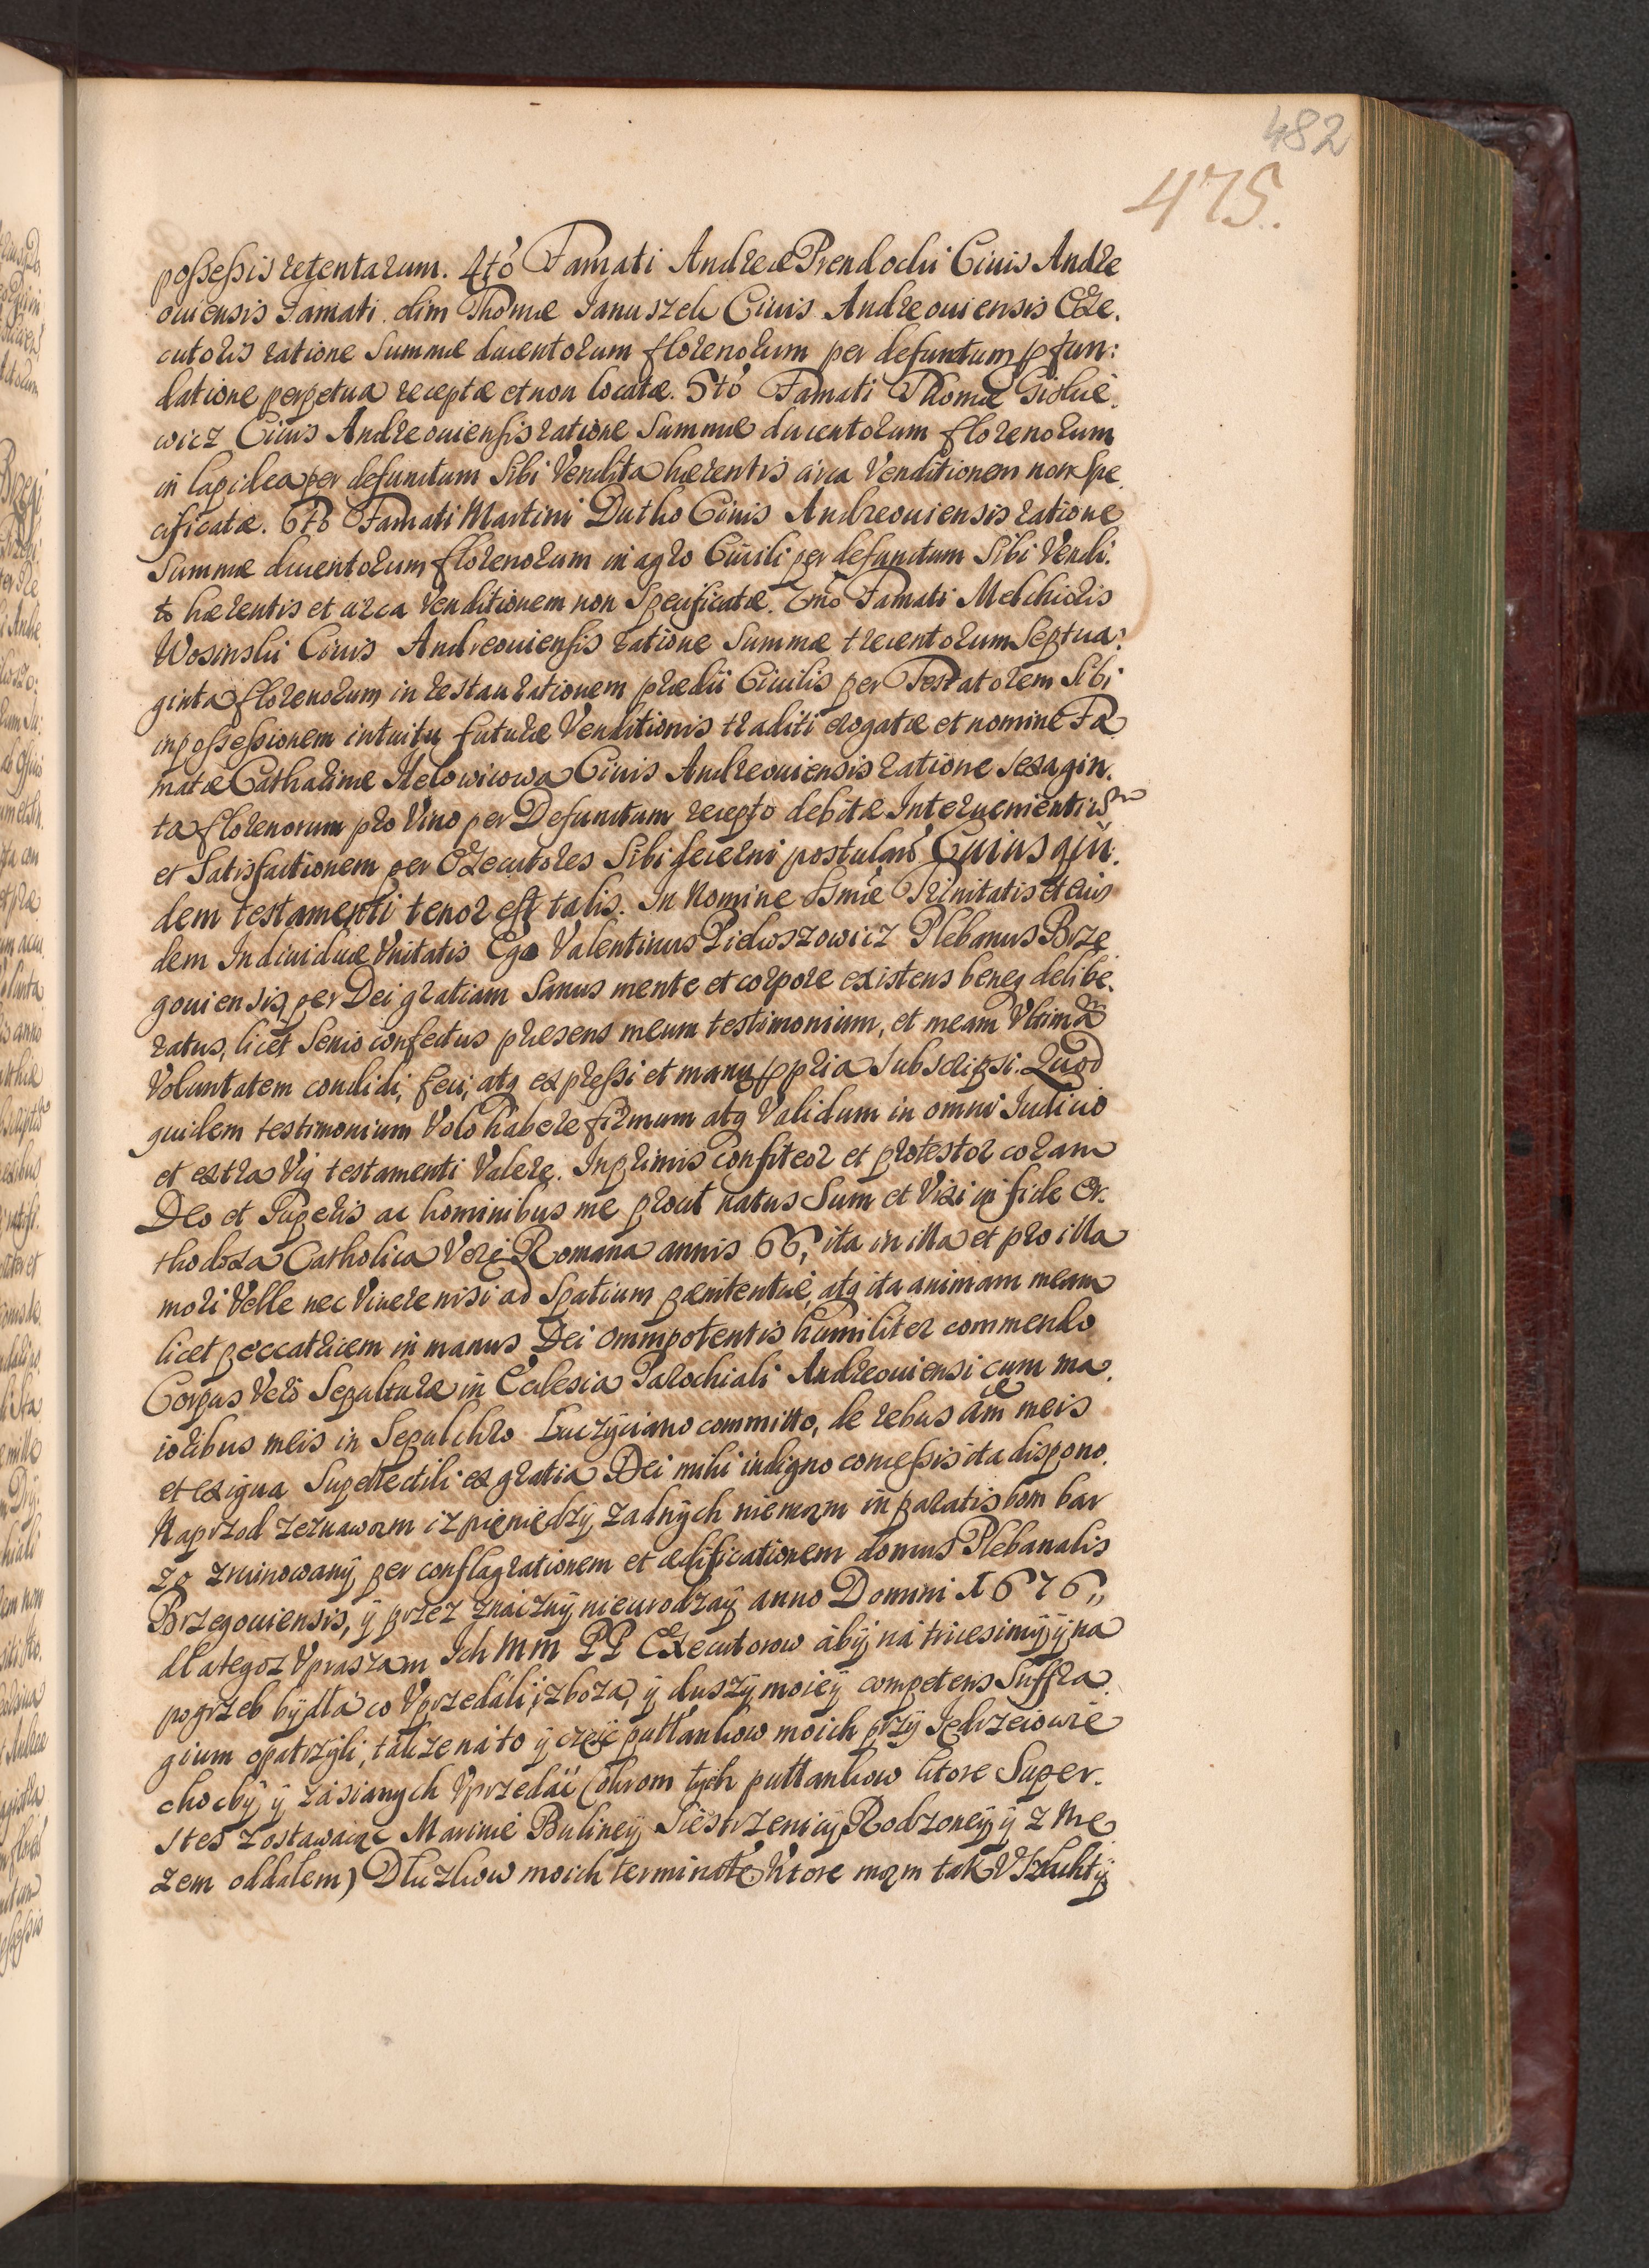 482
475.
possessis retentarum. 4to Famati Andreæ Prendochi Ciuis Andre
ouiensis Famati olim Thomæ Januszek Ciuis Andreouiensis Exe.
cutoris ratione Summæ ducentorum florenorum per defunctum p fun:
datione perpetua receptæ et non locatæ. 5to Famati Thomæ
wicz Ciuis Andreouiensis ratione Summæ ducentorum florenorum
in lapidea per defunctum Sibi Vendita hærentis circa Venditionem non Spe
cificatæ. 6to Famati Martini Dutko Ciuis Andreouiensis ratione
Summæ ducentorum florenorum in agro Ciuili per defunctum Sibi Vendi.
to hærentis et circa Venditionem non Specificatæ. 7mo Famati Melchioris
Wosinski Ciuis Andreouiensis ratione Summæ trecentorum Septua:
ginta florenorum in restaurationem prædii Ciuilis per Testatorem Sibi
in possessionem intuitu futuræ Venditionis traditi erogatæ et nomine Fa
matæ Catharinæ Ciuis Andreouiensis ratione sexagin.
ta florenorum pro Vino per Defunctum recepto debitæ Interuenientiu
et Satisfactionem per Executores Sibi fecerni postulan Cuius qui.
dem testamenti tenor est talis. In Nomine Ssmæ Trinitatis et eius
dem Indiuiduæ Vnitatis Ego Valentinus Pieluszowicz Plebanus Brze
gouiensis, per Dei gratiam Sanus mente et corpore existens beneq delibe.
ratus, licet Senio confectus præsens meum testimonium, et meam Vltimã
Voluntatem condidi, feci, atq expressi et manu ppria Subscripsi. Quod
quidem testimonium Volo habere firmum atq Validum in omni Iudicio
et extra Viq testamenti Valere. Inprimis Confiteor et protestor coram
Deo et Superis ac hominibus me prout natus Sum et Vixi in fide Or.
thodoxa Catholica Veré Romana annis 66, ita in illa et pro illa
mori Velle nec Viuere nisi ad Spatium pænitentiæ, atq ita animam meam
licet peccatricem in manus Dei Omnipotentis humiliter commendo
Corpus Vero Sepulturæ in Ecclesia Parochiali Andreouiensi cum ma.
ioribus meis in Sepulchro Luczyciano committo, de rebus aũt meis
et exigua Supellectili ex gratia Dei mihi indigno concessis ita dispono.
Naprzod zeznawam iz pieniedzy zadnych niemam in paratis bom bar
zo zruinowany per conflagrationem et ædificationem domus Plebanalis
Brzegouiensis, y przez znaczny nieurodzay anno Domini 1676,,
dlategoz Vpraszam Ich mm PP Executorow aby na tricesimy y na
pogrzeb bydła co Vprzedali, zboza, y duszy moiey competens Suffra.
gium opatrzyli, takze na to y część pułtankow moich przy Jedrzeiowie
choćby y zasianych Vprzedać (okrom tych pułtankow ktore Super.
stes zostawaiąc Marinie Buliney Siestrzenicy Rodzoney y z Mę
zem oddałem) Dłuzkow moich terminatę ktore mam tak V Szlachty